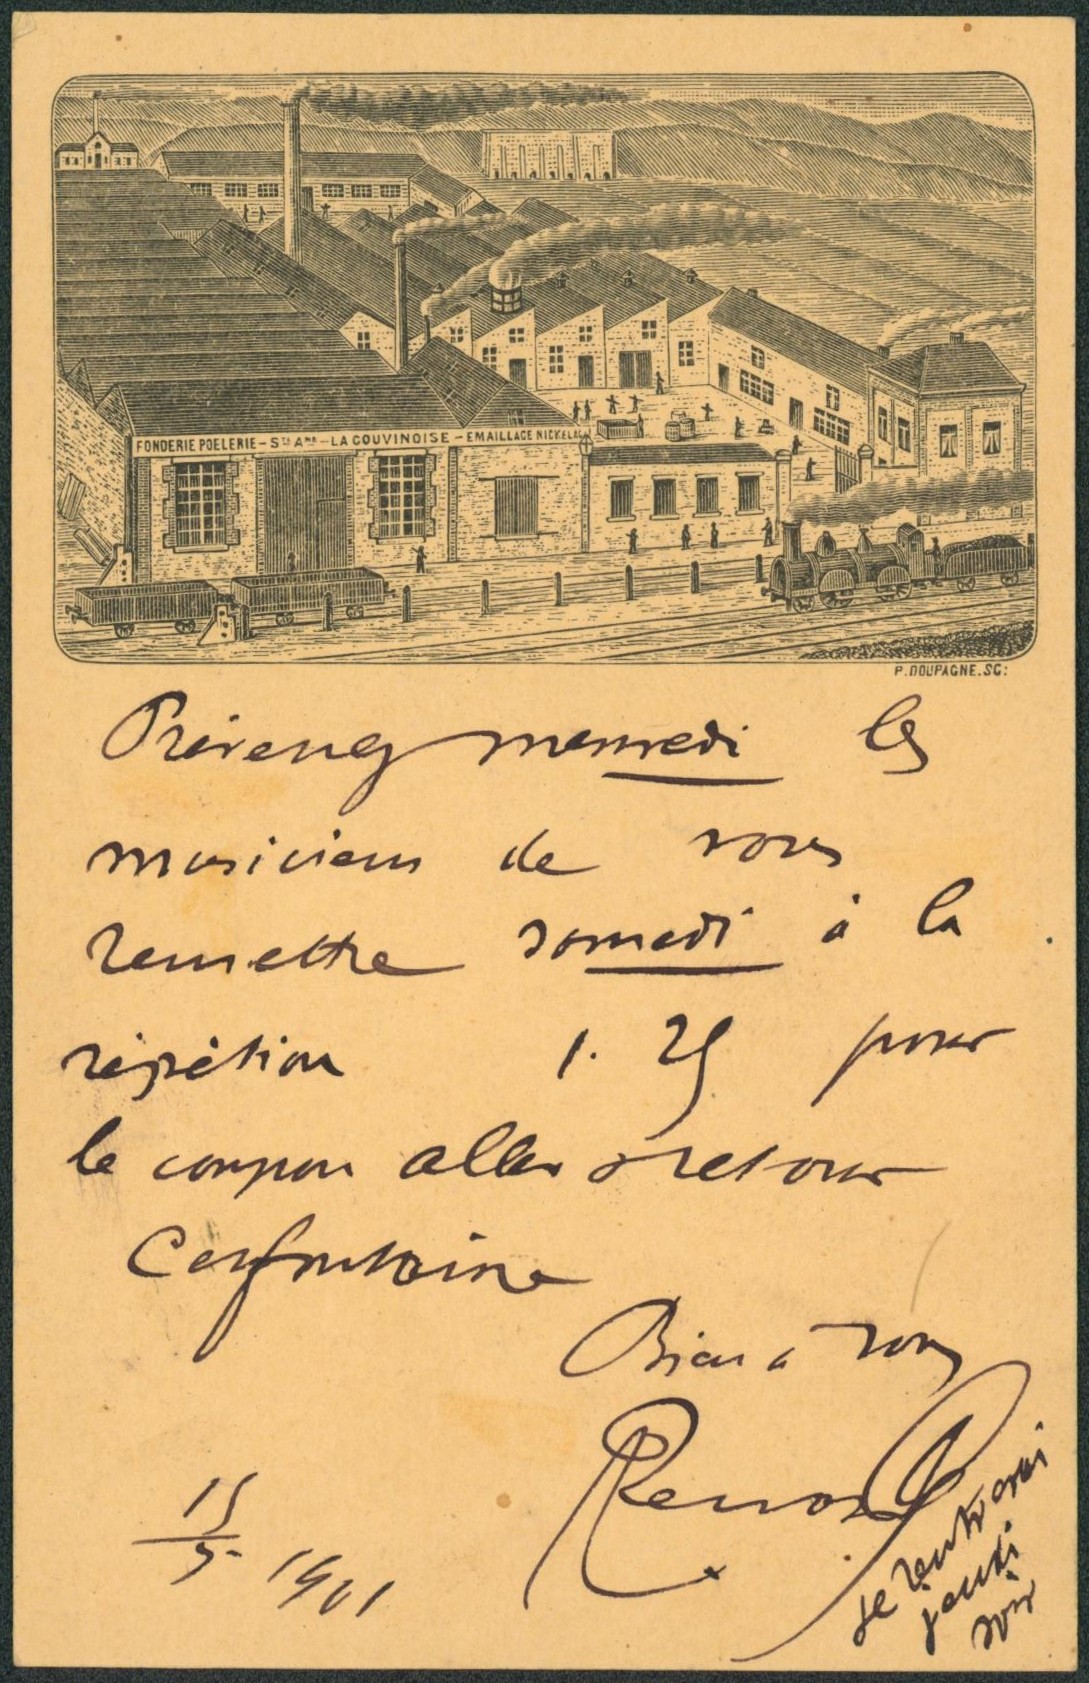 FONDERIE POELERIE – Sté Ame – LA COUVINOISE – EMAILLAGE NICKELAGE
P. DOUPAGNE. SC:
Prévenez mercredi les
musiciens de vous
remettre samedi à la
répétition 1.25 pour
le coupon aller & retour
Cerfontaine
Bien à vous
Renard
je rentrerai
jeudi
soir
15/5 1901